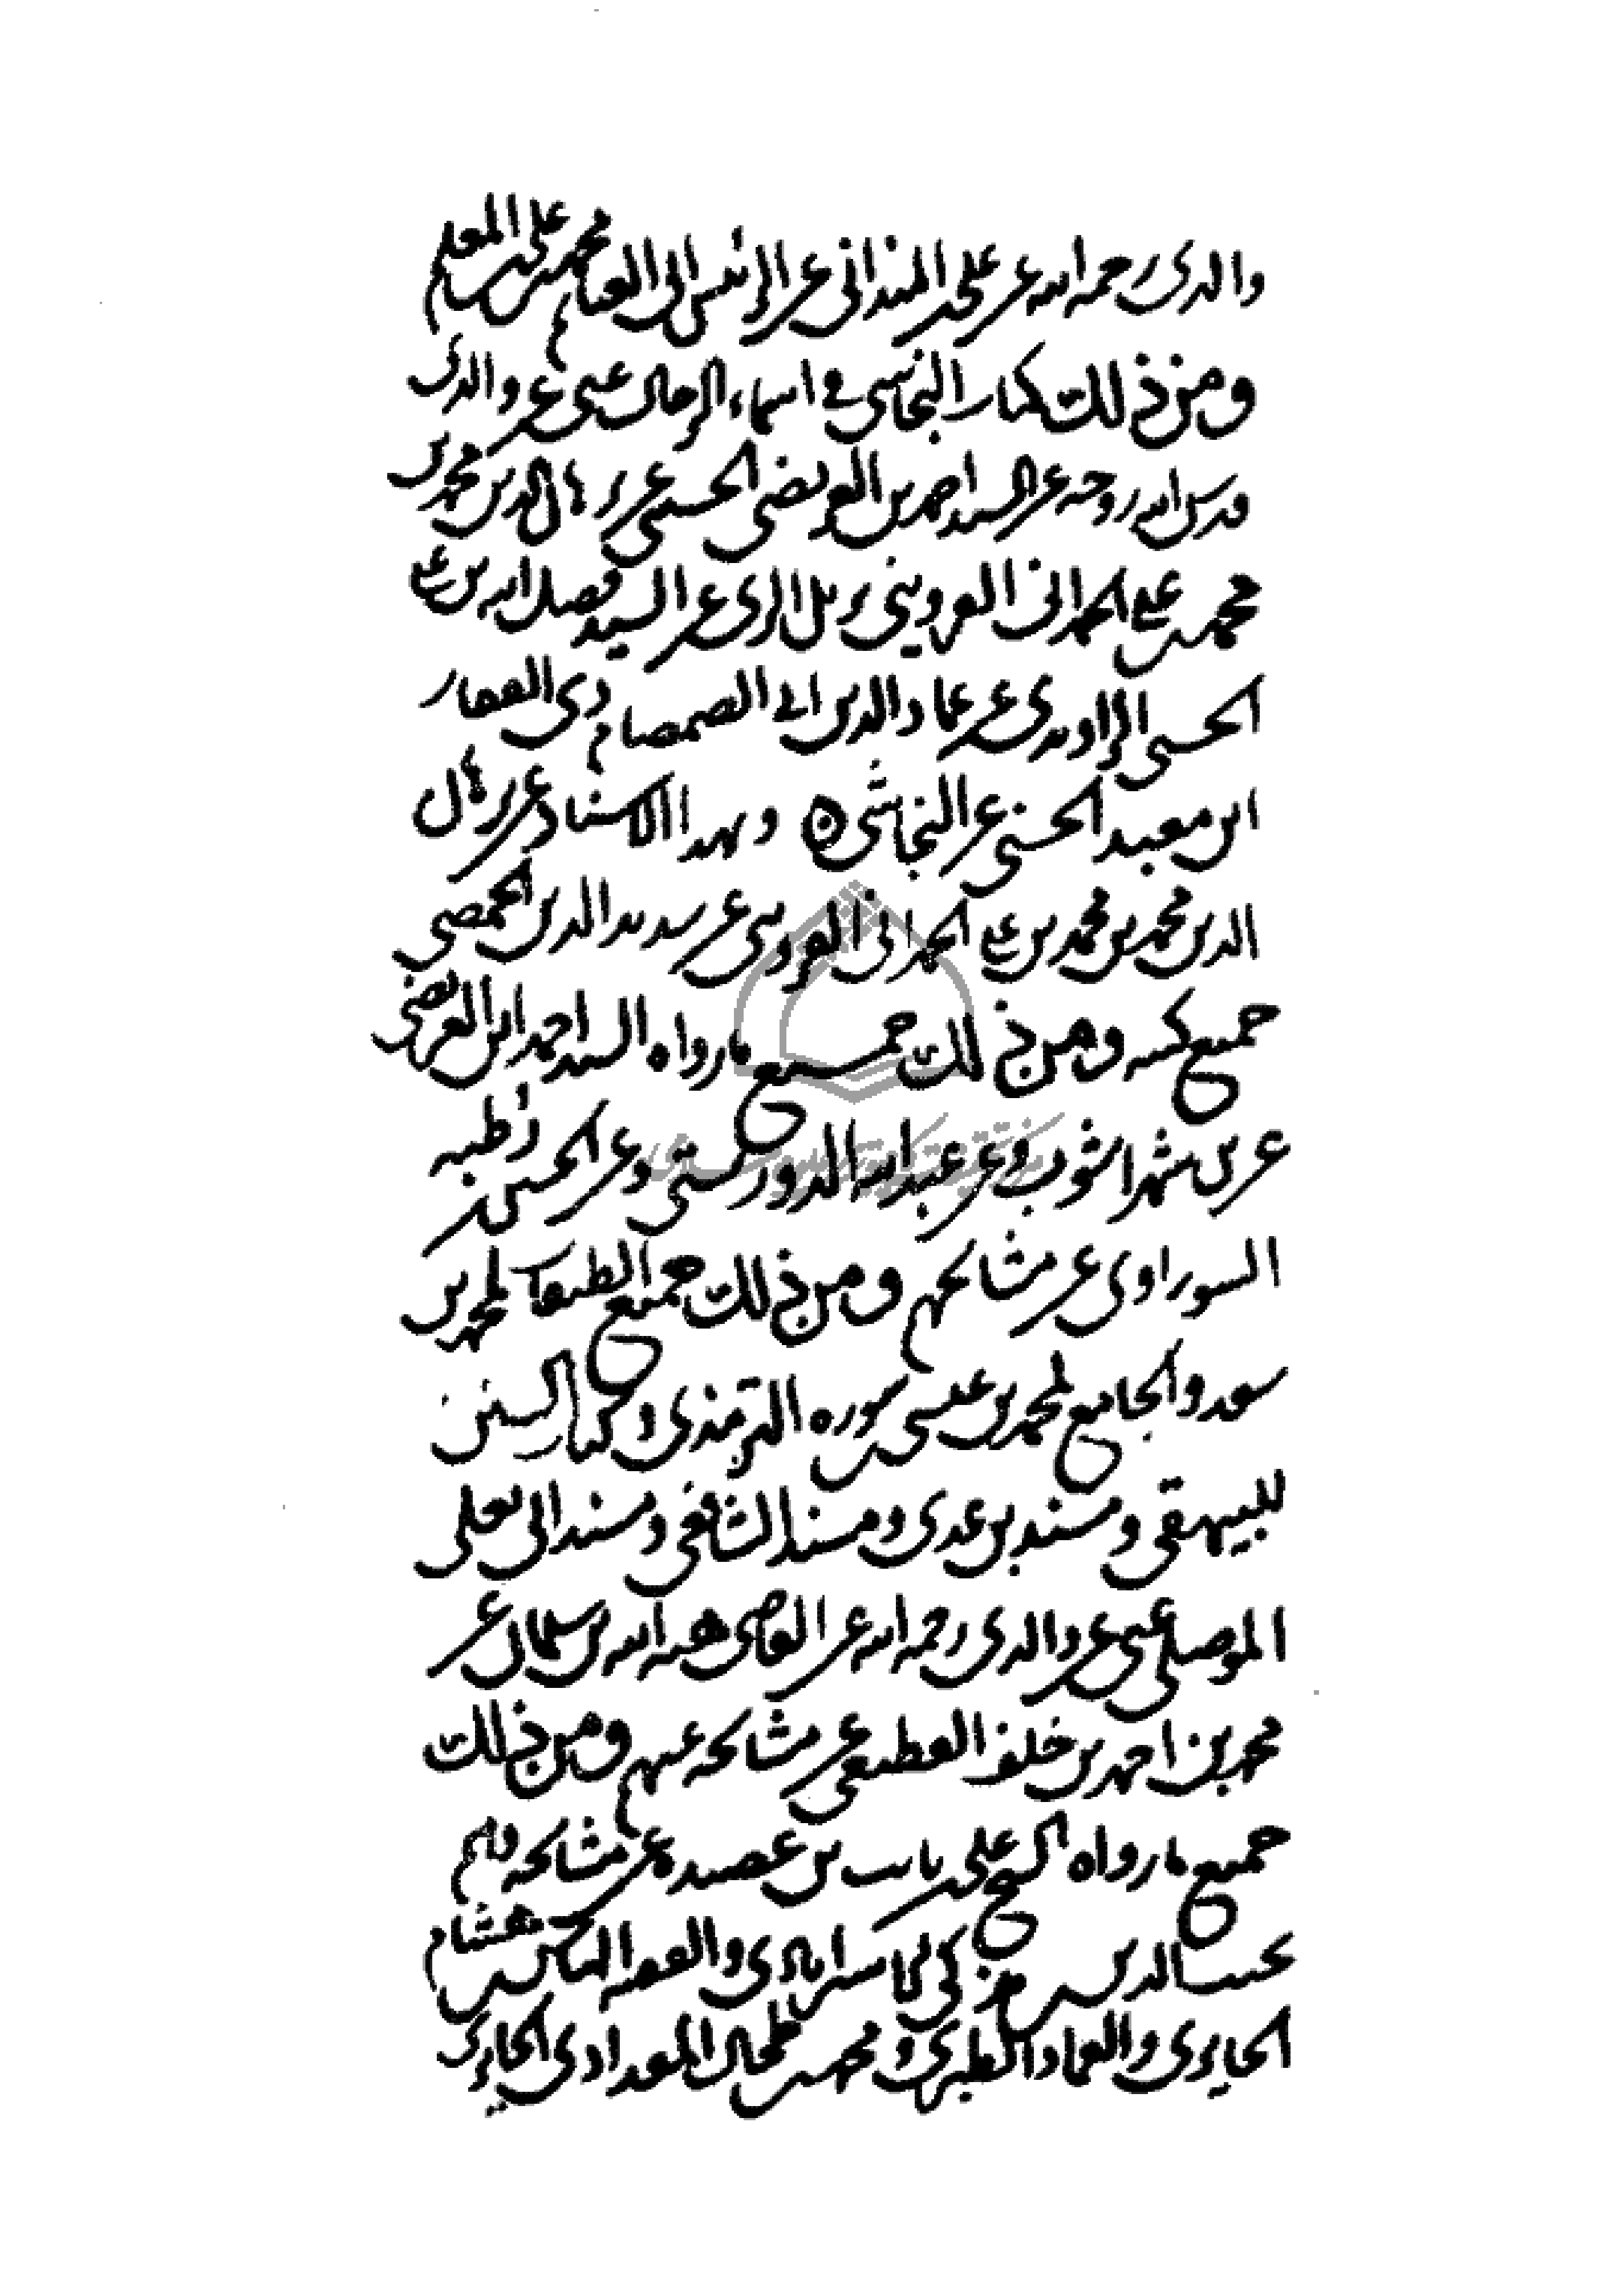 والدى رحمه الله عن على المندائى عن الرئيس ابى الغنائم محمد بن على بن المعلم
ومن ذلك كتاب النجاشى فى اسماء الرجال عنى عن والدى
قدس الله روحه عن السيد احمد بن العريضى الحسينى عن برهان الدين محمد بن
محمد بن على الحمدانى القزوينى نزيل الرى عن السيد فضل الله بن على
الحسنى الراوندى عن عماد الدين ابى الصمصام ذى الفقار
ابن معبد الحسنى عن النجاشى وبهذا الاسناد عن برهان
الدين محمد بن محمد بن على الحمدانى القزوينى عن سديد الدين الحمصى
جميع كتبه ومن ذلك جميع ما رواه السيد احمد ابن العريضى
عن بن شهراشوب وعن عبد الله الدوريستى وعن الحسين بن رطبه
السوراوى عن مشايخهم ومن ذلك جميع الطبقات لمحمد بن
سعد والجامع لمحمد بن عيسى بن سوره الترمذى وكتاب السنن
للبيهقى ومسند بن عدى ومسند الشافعى ومسند ابى يعلى
الموصلى عنى عن والدى رحمه الله عن القاضى هبه الله بن سلمان عن
محمد بن احمد بن خلف القطيعى عن مشايخه عنهم ومن ذلك
جميع ما رواه الشيخ على بن ثابت بن عصيده عن مشايخه وهم
نجيب الدين بن مذكى الاسترابادى والفقيه الياس بن هشام
الحايرى والعماد الطبرى ومحمد بن طحال المقدادى الحايرى